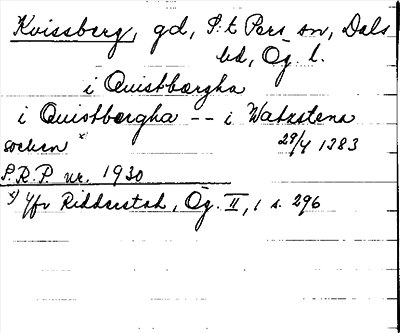 Kvissberg, gd, S:t Pers sn, Dals
hd, Ög. l.
i Quistbærgha
i Quistbærgha -- i Watzstena
socken x) 29/4 1383
S.R.P. nr. 1930
x) Jfr Ridderstad, Ög. II, 1 s. 296